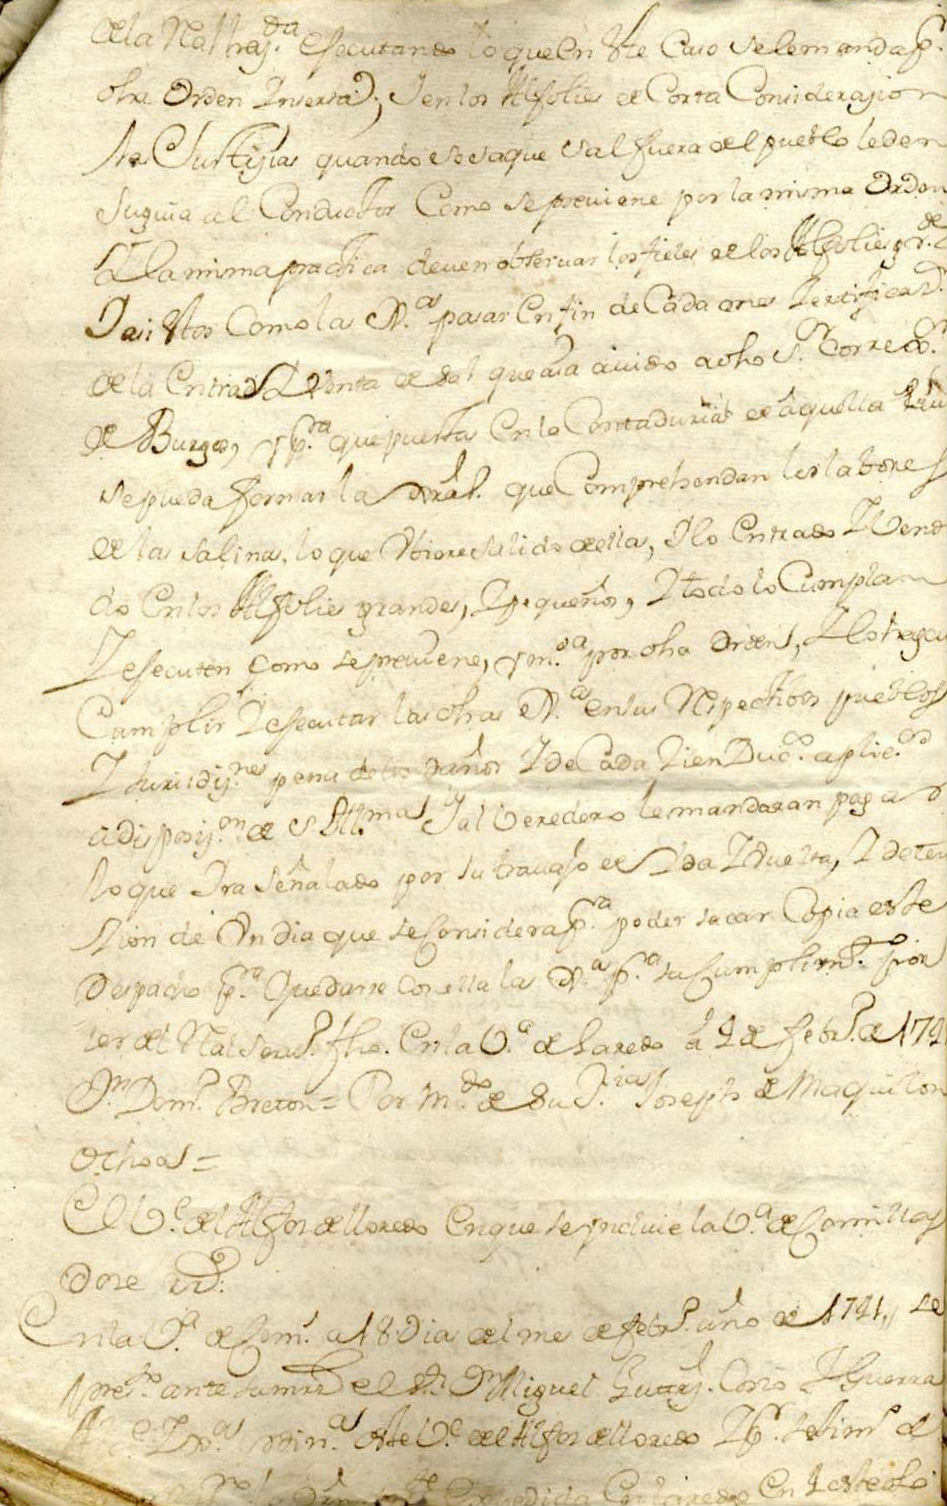 de la Rl Haz.da executando lo que en este Caso se le manda p.r
dha Orden Inserta; y en los Alfolies de Corta Considerazion
las Justizias quando se saque sal fuera del pueblo le den
su guia al Conductor Como se previene por la misma Orden
la misma practica deven observar los fieles de los Alfolies gr.des
asi estos Como las J.as pasar en fin de Cada mes Zertificaz.n
de la Entrada y Venta de sal que aia avido a dho S.r Correx.or
de Burgos, y p.ra que puesta en la Contaduria de aquella
se pueda formar la Gral. que Comprehendan las labores
de las salinas, lo que Vbiere salido de ella, y lo entrado y Vendi
do en los Alfolies grandes, y pequeños, y todo lo Cumplan
y executen como se previene, y m.da por dha Orden, y lo hagan
Cumplir y executar las dhas J.as en sus Respectibos pueblos
y Jurisdiz.nes pena de los daños y de Cada Zien Duc.os aplic.dos
a disposiz.on de S Ill.ma y al Veredero le mandaran pagar
lo que Ira señalado por su travajo de Ida y Vuelta, y deten
sion de Vn dia que se Considera p.a poder sacar Copia de este
Despacho p.a Quedarse con ella las J.as p.a su Cumplim.to
del Rl Servi.o fho. en la V.a de Laredo a 2 de febr.o de 1741
D.n Dom.o Breton = Por M.do de Su S.ria Joseph de Maquilon
Ochoa =
El V.e del Alfoz de lloredo en que se ynclúie la V.a de Comillas
Doze
En la V.a de Com.s a 18 Dia del mes de febr.o año de 1741, se
pres.to ante su mrd el S.r D.n Miguel Guttrrz. Cosio y Guerra
ordin.o de este V.e del Alfoz de lloredo
expedida en Laredo en 2 de este